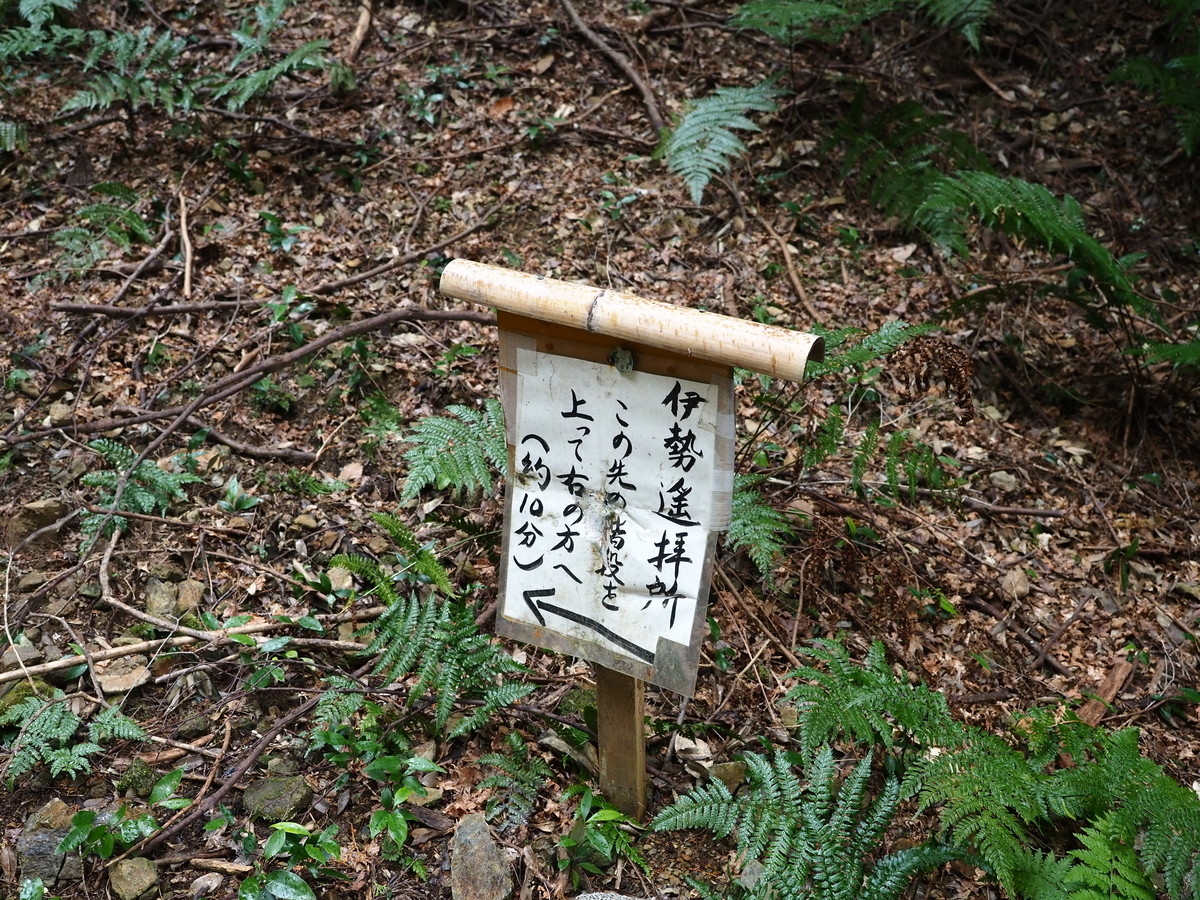 伊勢遥拝所
この先の階段を
上って右の方へ
(約10分)